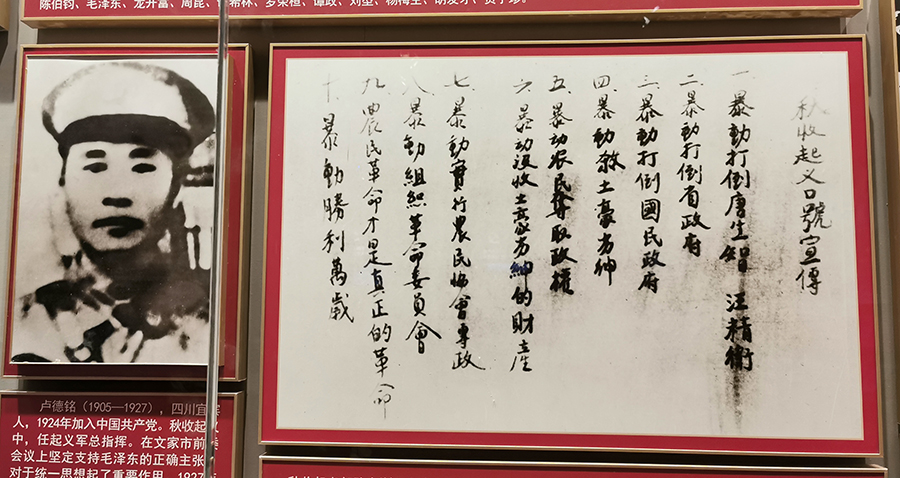 陈伯钧、毛泽东、龙开富、周昆、希林、罗荣桓、谭政、刘型、杨梅生、胡友才、贺子珍。
秋收起义口號宣傳
一、暴動打倒唐生智 汪精衛
二、暴動打倒省政府
三、暴動打倒國民政府
四、暴動殺土豪劣紳
五、暴动农民奪取政權
六、暴动沒收土豪劣紳的財產
七、暴動實行農民協會專政
八、暴動組織革命委員會
九、農民革命才是真正的革命
十、暴動勝利萬歲
卢德铭（1905—1927），四川宜宾
人，1924年加入中国共产党。秋收起义
中，任起义军总指挥。在文家市前
会议上坚定支持毛泽东的正确主张
对于统一思想起了重要作用。1927